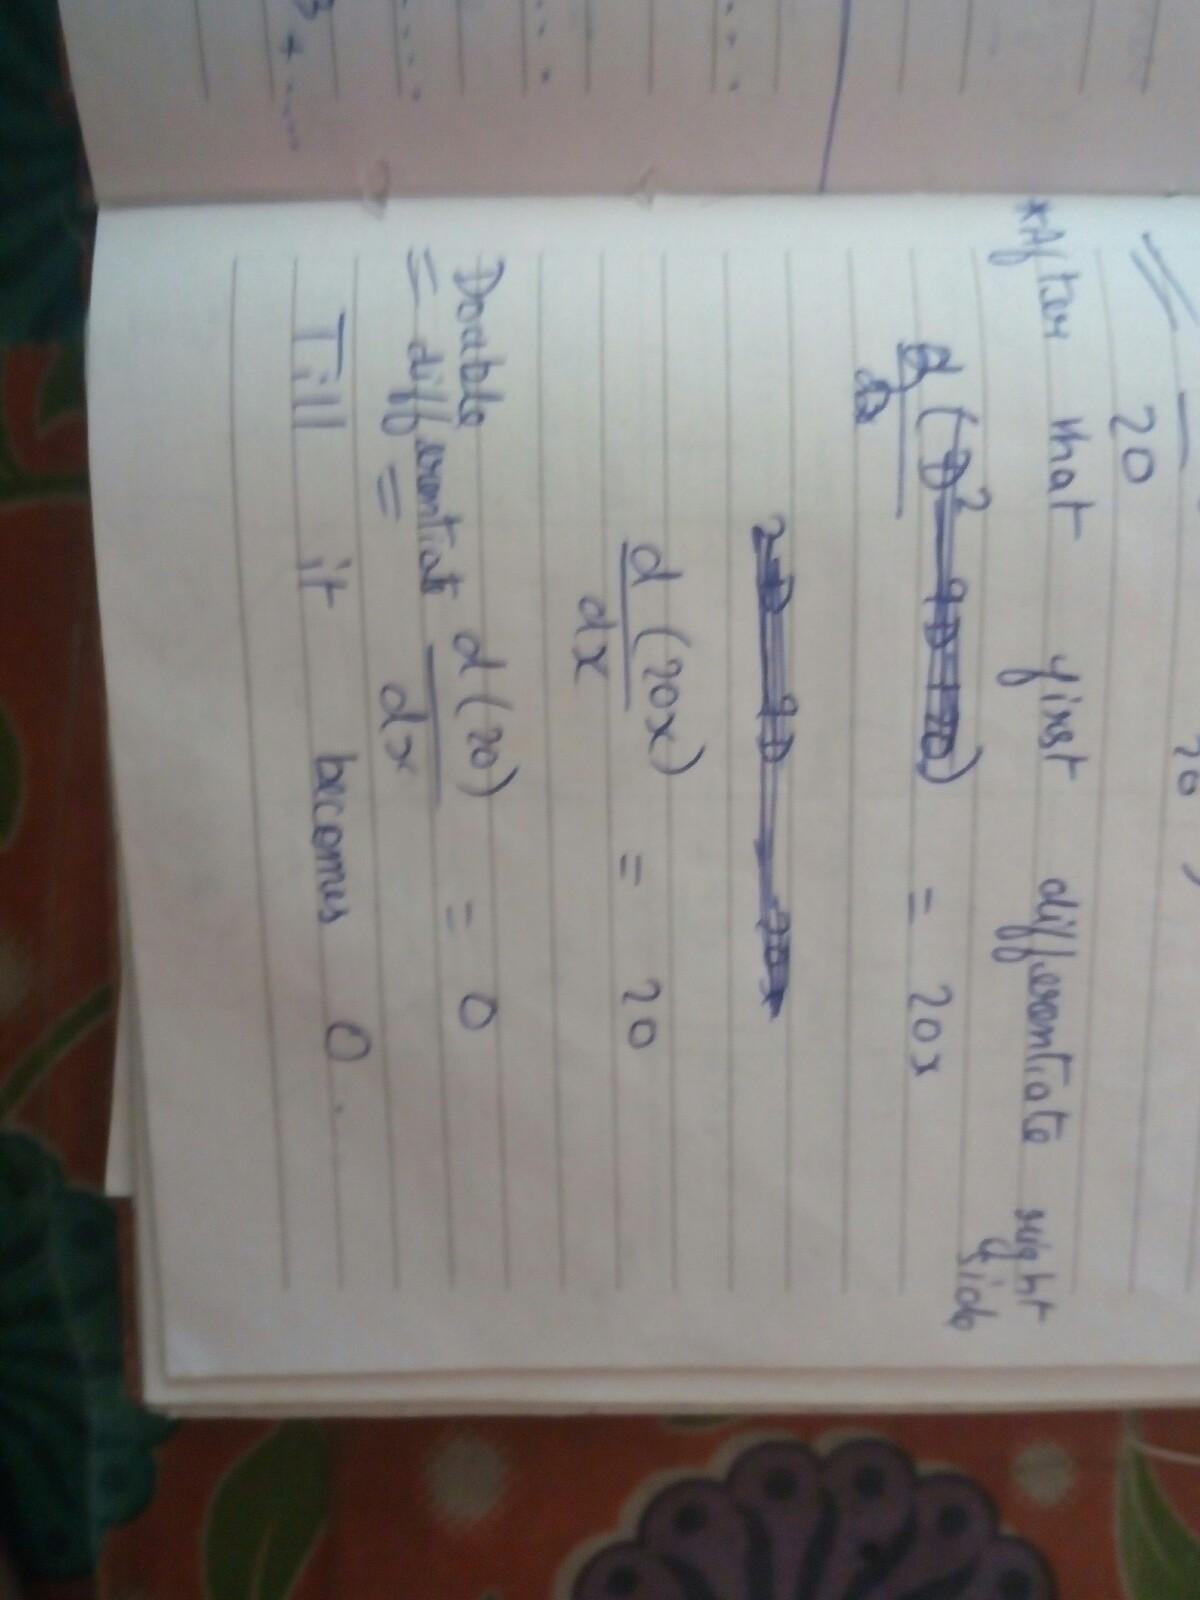 20
*After that first differentiate right side
d/dx (D² - 9D + 20) = 20x
d/dx (20x) = 20
Double differentiate d(20)/dx = 0
Till it becomes 0.